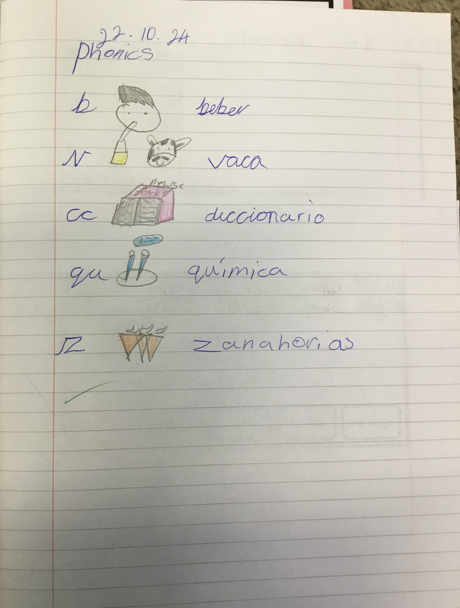 22.10.24
Phonics
b beber
v vaca
cc diccionario
qu química
z zanahorias